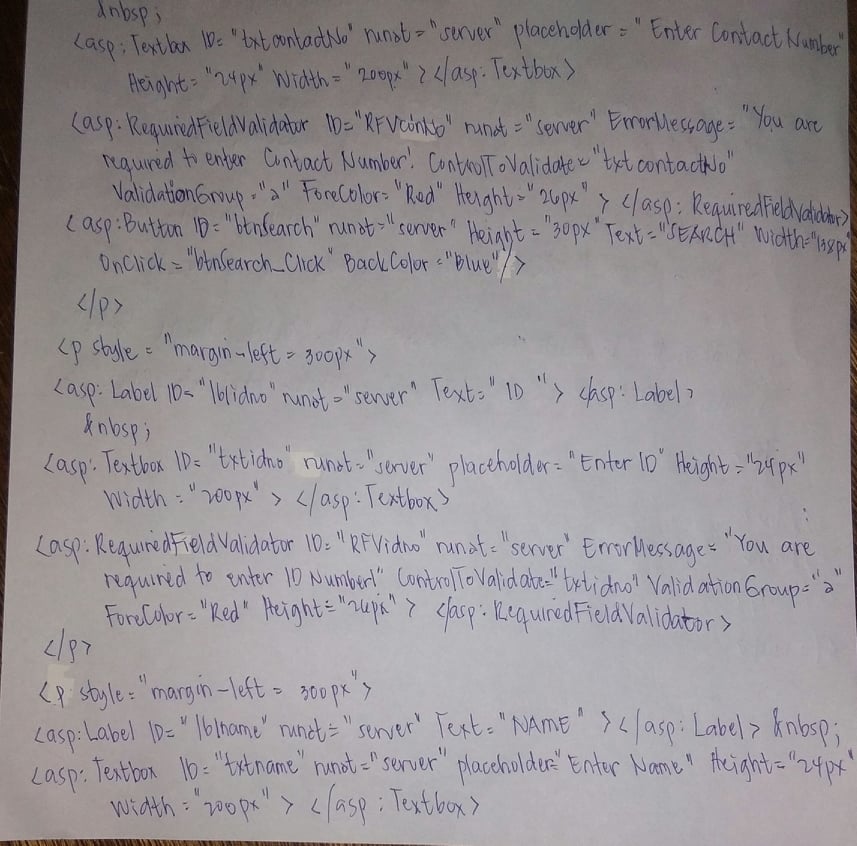 &nbsp;
<asp:Textbox ID="txtcontactNo" runat="server" placeholder="Enter Contact Number"
Height="24px" Width="200px"></asp:Textbox>
<asp:RequiredFieldValidator ID="RFVconNo" runat="server" ErrorMessage="You are
required to enter Contact Number!. ControlToValidate="txtcontactNo"
ValidationGroup="a" ForeColor="Red" Height="26px"></asp:RequiredFieldValidator>
<asp:Button ID="btnSearch" runat="server" Height="30px" Text="SEARCH" Width="138px"
OnClick="btnSearch_Click" BackColor="Blue"/>
</p>
<p style="margin-left = 300px">
<asp:Label ID="lblidno" runat="server" Text="ID"></asp:Label>
&nbsp;
<asp:Textbox ID="txtidno" runat="server" placeholder="Enter ID" Height="24px"
Width="200px"></asp:Textbox>
<asp:RequiredFieldValidator ID="RFVidno" runat="server" ErrorMessage="You are
required to enter ID Number!" ControlToValidate="txtidno" ValidationGroup="a"
ForeColor="Red" Height="26px"></asp:RequiredFieldValidator>
</p>
<p style="margin-left = 300px">
<asp:Label ID="lblname" runat="server" Text="NAME"></asp:Label> &nbsp;
<asp:Textbox ID="txtname" runat="server" placeholder="Enter Name" Height="24px"
Width="200px"></asp:Textbox>